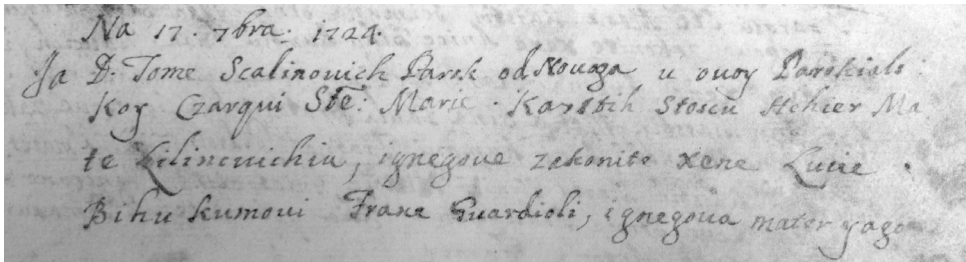 Na 17. 7bra. 1724.
Ja D. Tome Scalinovich Parok od Novoga u ovoy Parokials
Koy Czarqui Ste: Marie. Karstih Stoscu Hchier Ma-
te Lilincuichiu, ignegove zakonite xene Lucie.
Bihu kumovi Frane Guardioli, ignegova mater yago